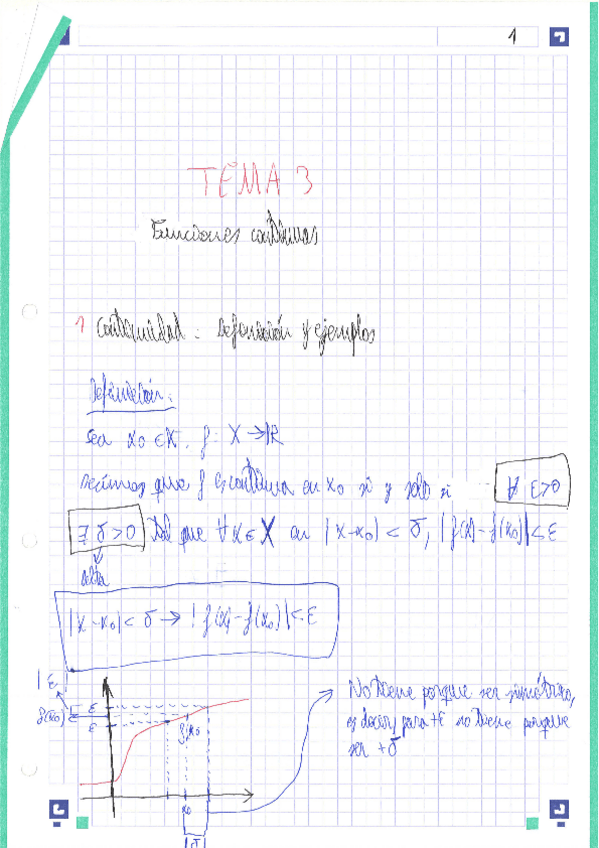 1
TEMA 3
Funciones continuas
1 Continuidad: Definición y ejemplos
Definición:
Sea x₀ ∈ X. f: X → ℝ
Decimos que f es continua en x₀ si y solo si ∀ ε>0
∃ δ>0 tal que ∀ x ∈ X con |x-x₀| < δ, |f(x)-f(x₀)| < ε
delta
|x-x₀| < δ → |f(x)-f(x₀)| < ε
No tiene porque ser simétrico,
es decir, para +ε no tiene porque
ser +δ
ε
ε
f(x₀)
ε
f(x₀)
x₀
δ